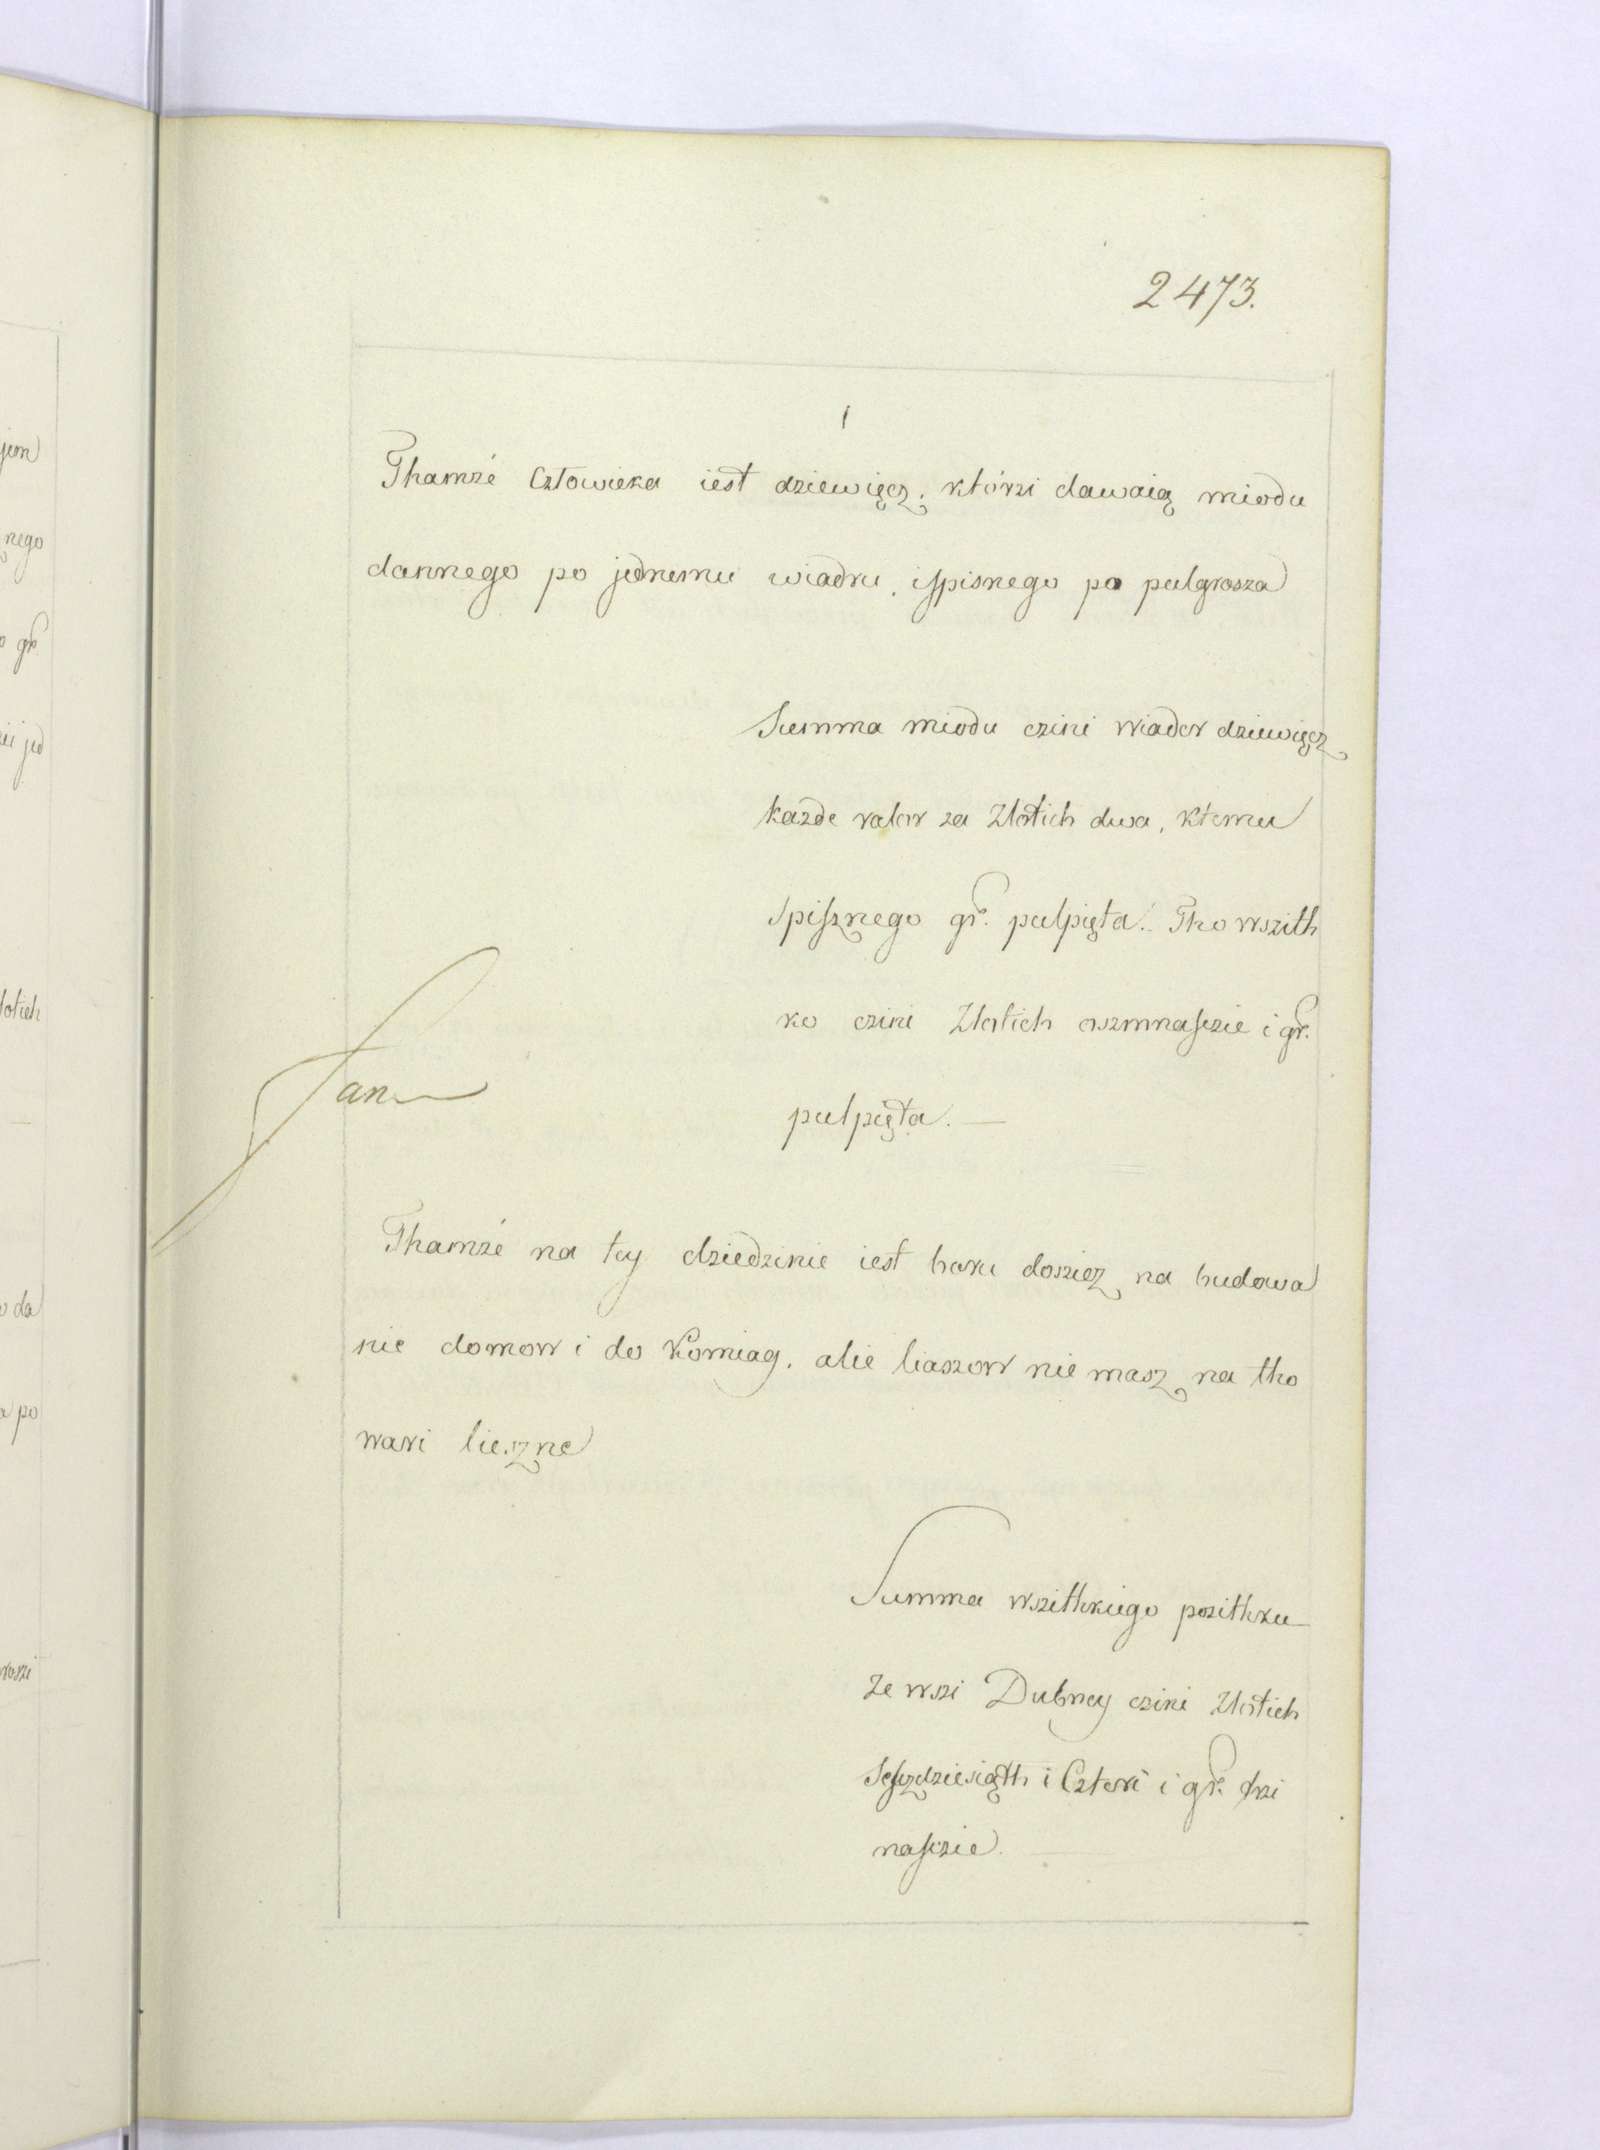 jem
nego
gr
jed
lotich
da
po
roszi
2473.
Thamże Człowieka iest dziewięcz, którzi dawaią miodu
dannego po jednemu wiadru, ispisnego po pulgrosza
Summa miodu czini wiader dziewięcz
każde valor za Zlotich dwa, ktemu
spisznego gr. pulpięta. Tho wszith
ko czini Zlotich oszmnascie i gr.
pulpięta. —
Jan
Thamże na tey dziedzinie iest boru dosziez na budowa
nie domow i do Komiag, alie liaszow nie masz na tho
wari lieszne
Summa wszithkiego poszithku
Ze wszi Dubney czini Zlotich
Seszdziesiąth i Czteri i gr. trzi
nascie. —